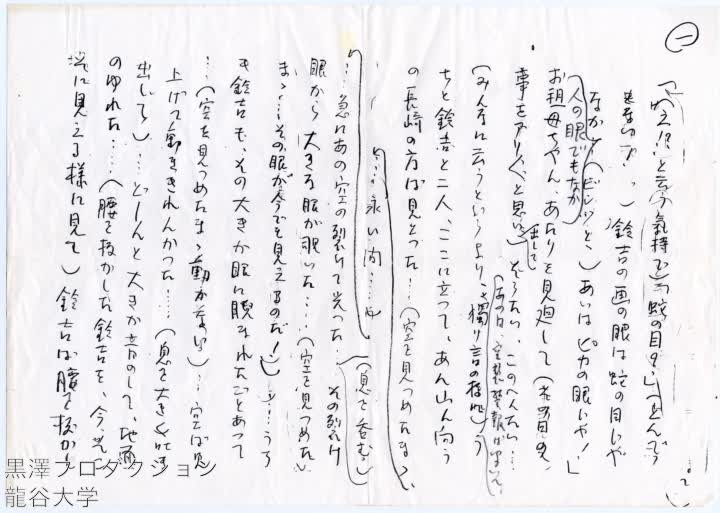 一
と云う気持で）蛇の目の
鈴吉の画の眼は蛇の目じゃ
なか！（ピシッと、）あいはピカの眼いや！」
人の眼でもなか
お祖母ちゃん、あたりを見廻して（
事をアリ〱と思い出して）そうたい、このへんたい…
あの日、空襲警報が
（みんなに云うというより、獨り言の様に）う
ちと鈴吉と二人、ここに立って、あん山ん向う
の長崎の方ば見とった…（空を見つめたまゝ、
…永い間…
（息を呑む）
…急にあの空の裂けて光った…その裂け
眼から大きな眼が覗いた…（空を見つめたい
まゝ…その眼が今でも見えるのだ！）…うち
も鈴吉も、その大きか眼に睨まれたごとあって
…（空を見つめたまゝ動かない）…空ば見
上げて動ききれんかった…（息を大きく吐き
出して）…どーんと大きか音のして、地面
のゆれた…（腰を抜かした鈴吉を、今、
に見える様に見て）鈴吉は腰を抜かし
黒澤プロダクション
龍谷大学